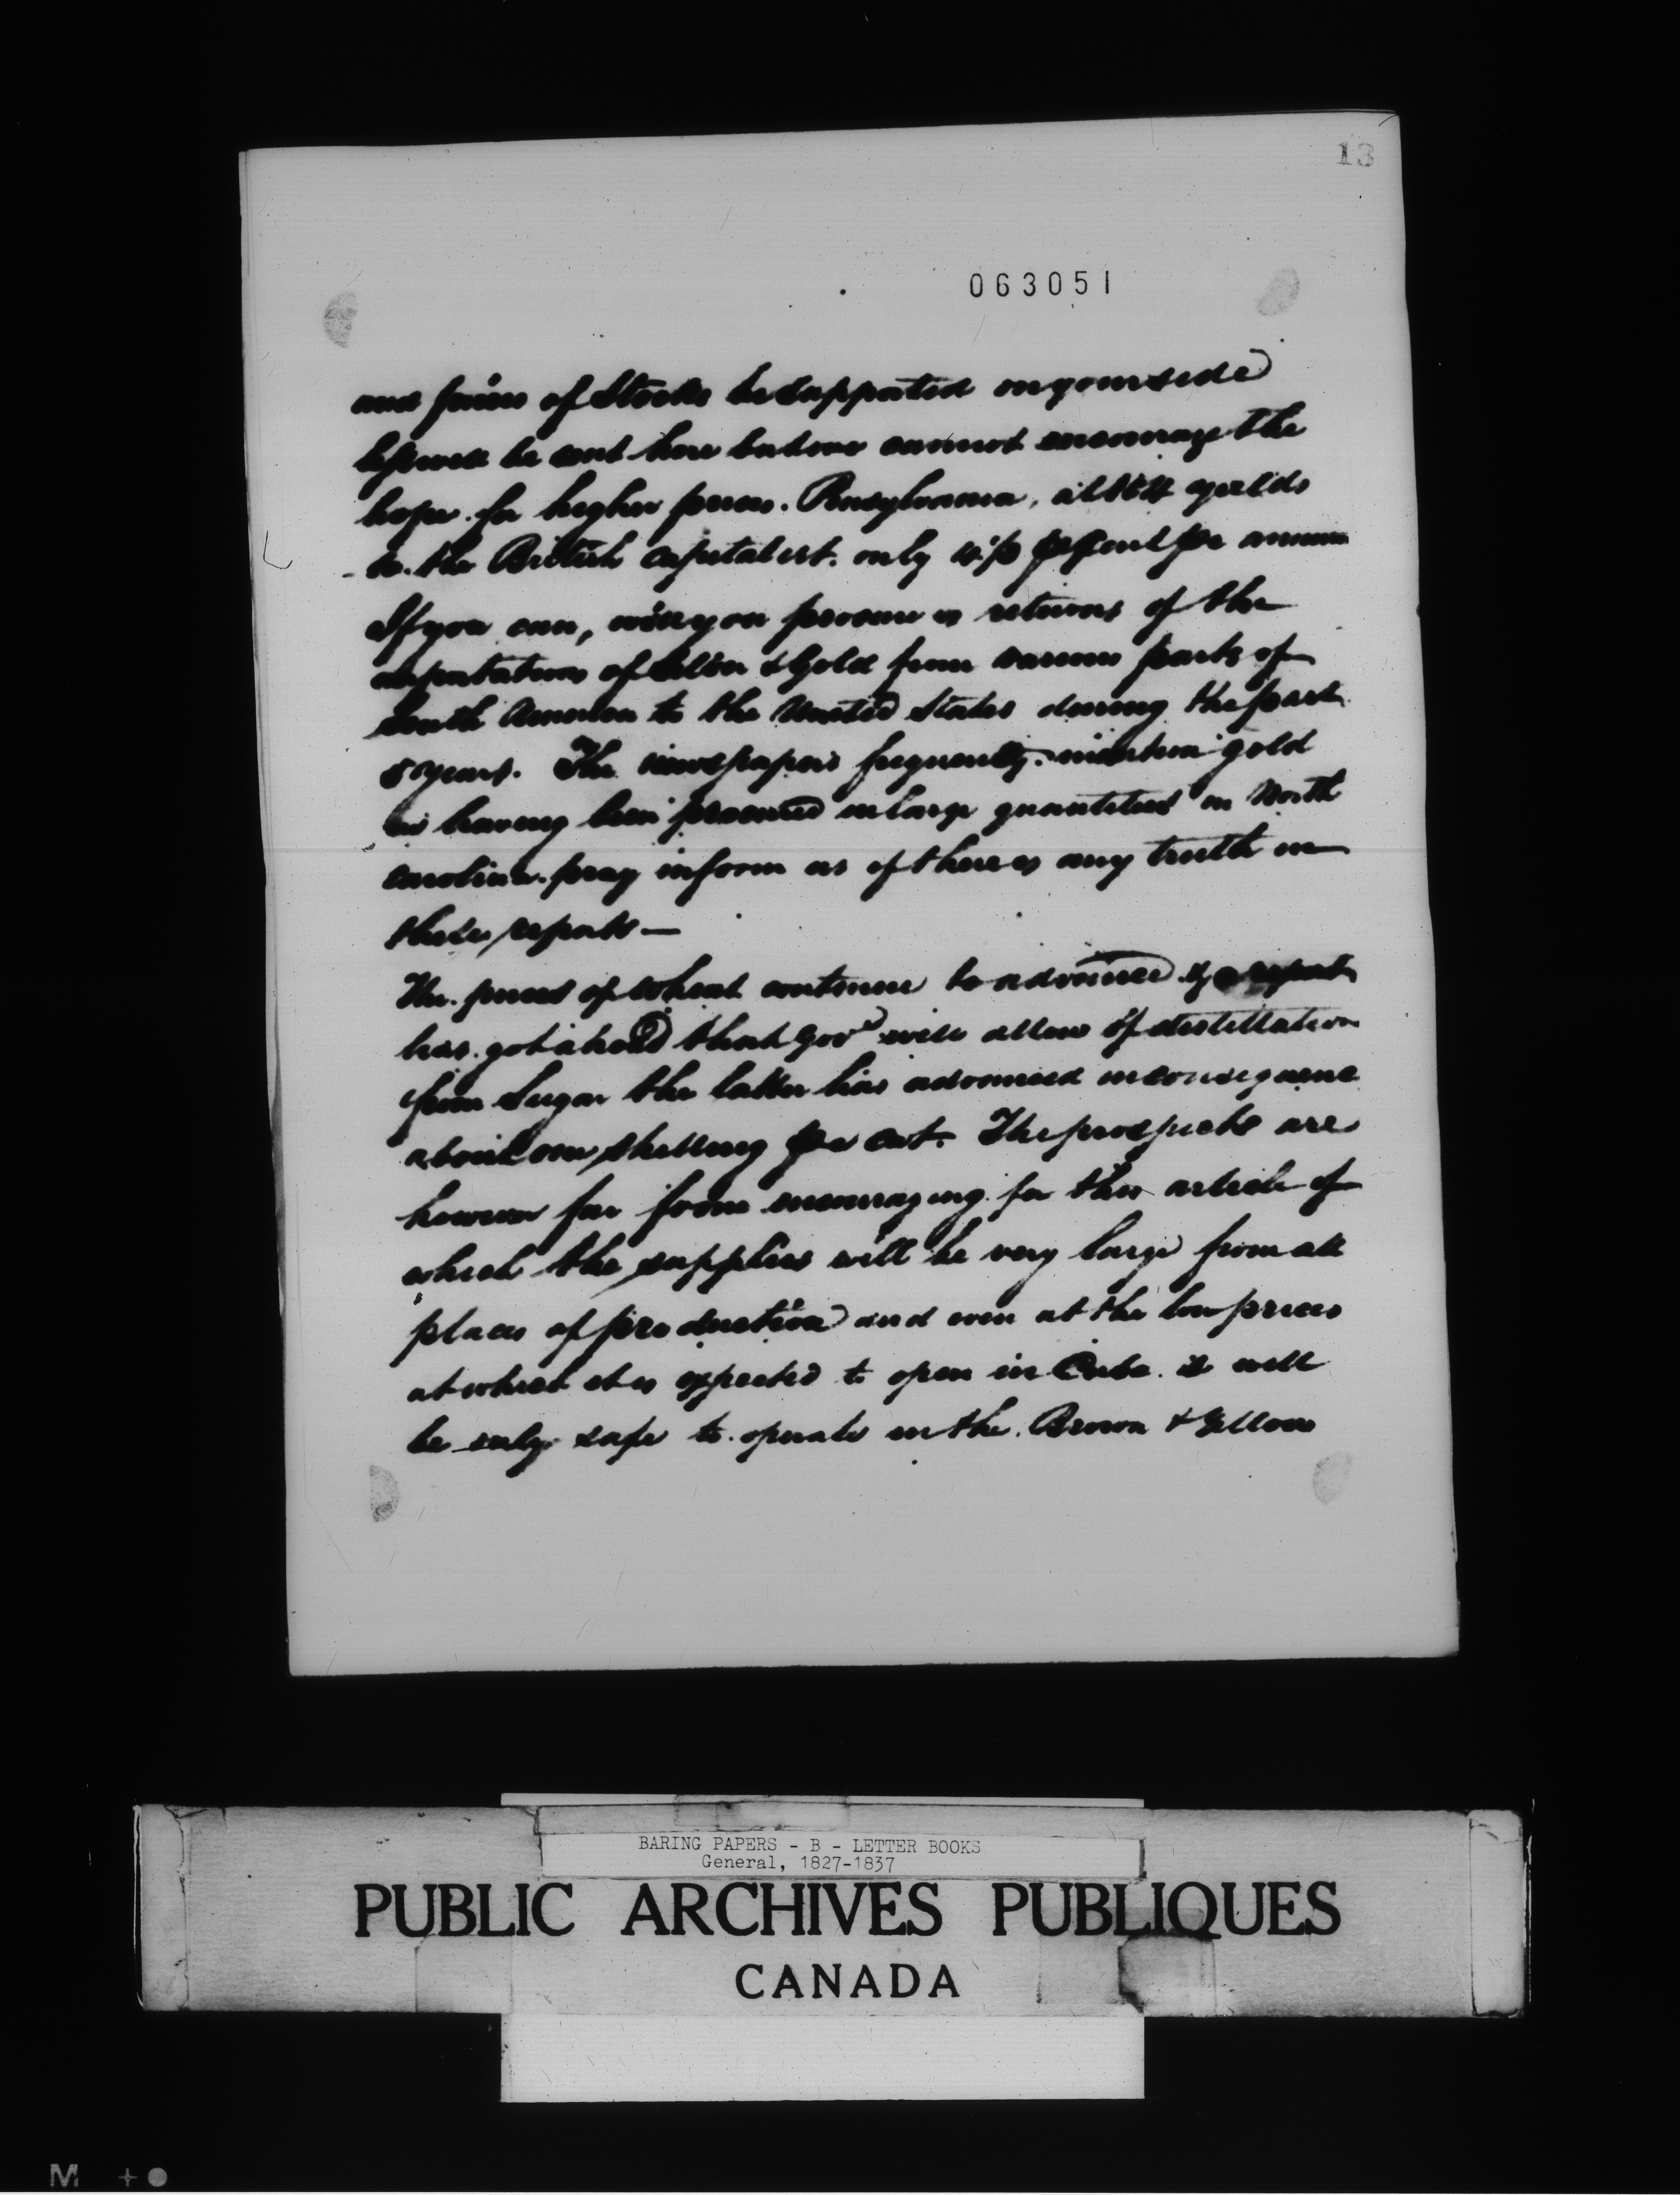 13
063051
and prices of Stocks be supported on your side
less will be sent here but we cannot encourage the
hope for higher prices. Pensylvania, at yields
to the British capitalist only p Cent pr annum
If you can, will you procure us returns of the
importations of Silver & Gold from various parts of
South America to the United States during the past
5 years. The newspapers frequently mention gold
as having been procured in large quantities in North
Carolina. pray inform us if there is any truth in
these reports —
The prices of Wheat continue to advance & a report
has got ahead that Govt will allow of distillation
from Sugar the latter has advanced in consequence
about one shilling per cwt. The prospects are
however far from encouraging for this article of
which the supplies will be very large from all
places of production and even at the low prices
at which it is expected to open in Cuba it will
be only safe to operate in the Brown & Yellow
BARING PAPERS - B - LETTER BOOKS
General, 1827-1837
PUBLIC ARCHIVES PUBLIQUES
CANADA
M +